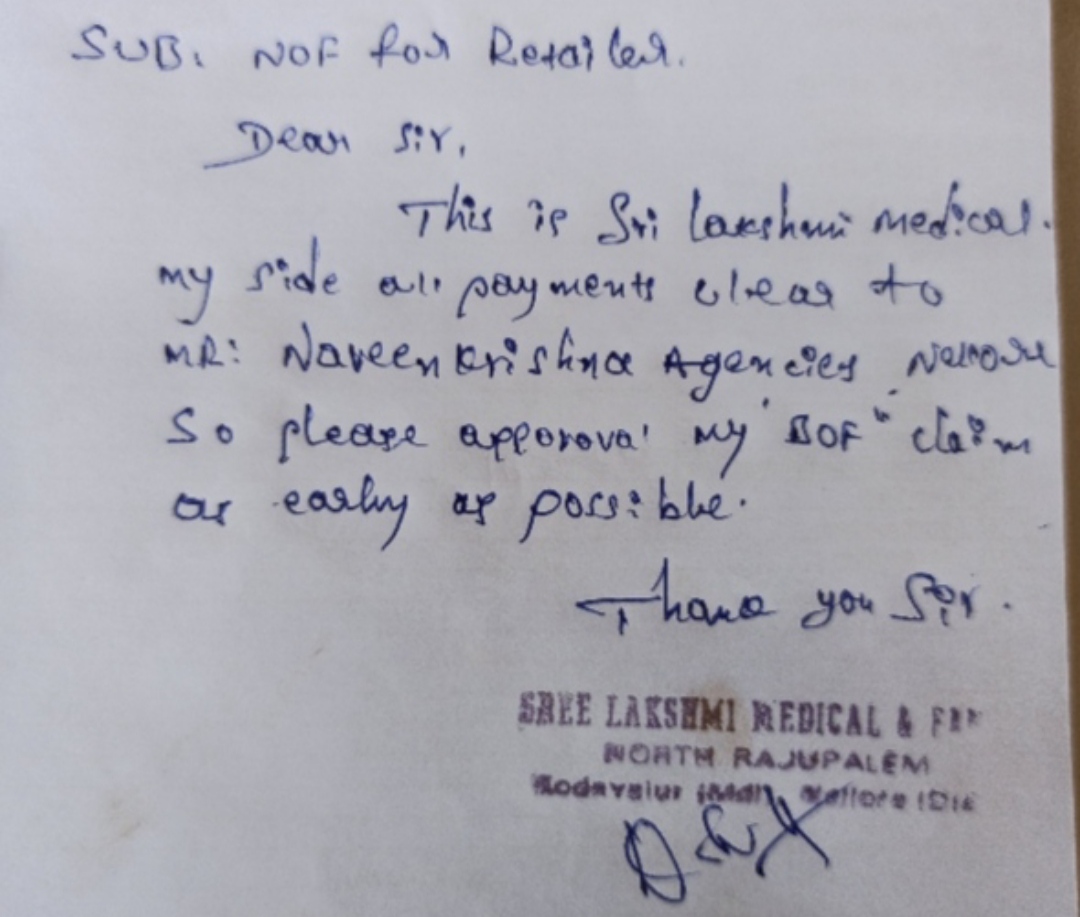 SUB: NOF for Retailer.
Dear Sir,
This is Sri lakshmi medical.
my side all payments clear to
MR: Naveen krishna Agencies Nellore
So please approval my "BOF" claim
as early as possible.
Thank you Sir.
SREE LAKSHMI MEDICAL &
NORTH RAJUPALEM
Kodavalur (Mdl), Nellore (Dt